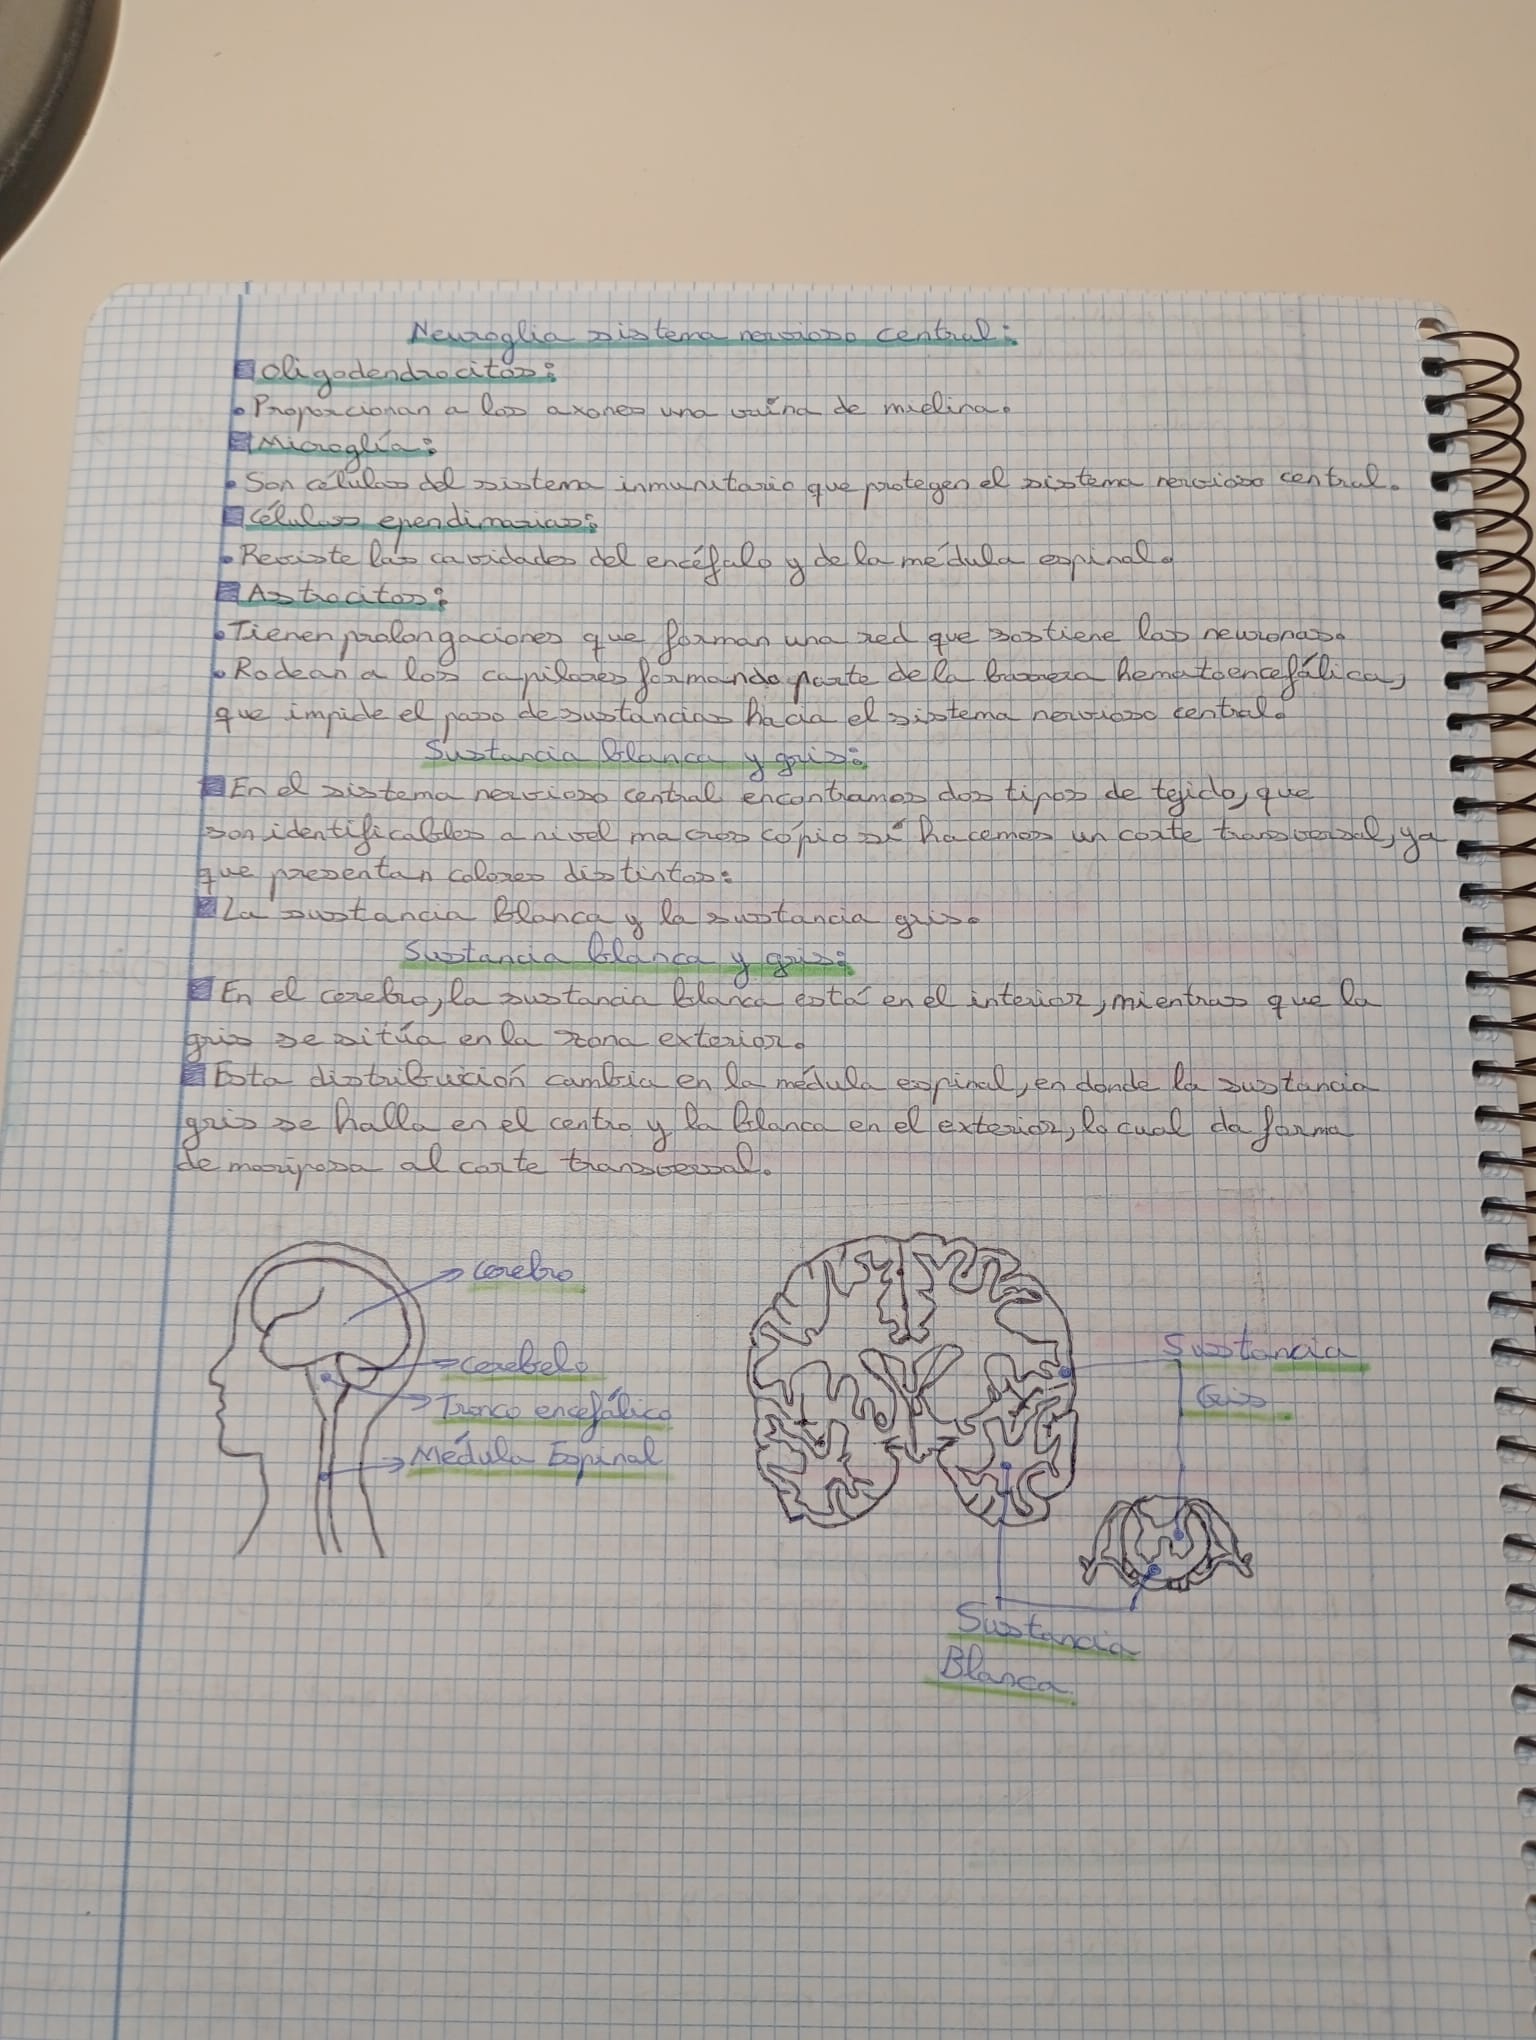 Neuroglia sistema nervioso central:
Oligodendrocitos:
• Proporcionan a los axones una vaína de mielina.
Microglía:
• Son células del sistema inmunitario que protegen el sistema nervioso central.
Células ependimarias:
• Reviste las cavidades del encéfalo y de la médula espinal.
Astrocitos:
• Tienen prolongaciones que forman una red que sostiene las neuronas.
• Rodean a los capilares formando parte de la barrera hematoencefálica,
que impide el paso de sustancias hacia el sistema nervioso central.
Sustancia blanca y gris:
En el sistema nervioso central encontramos dos tipos de tejido, que
son identificables a nivel macroscópio sí hacemos un corte transversal, ya
que presentan colores distintos:
La sustancia blanca y la sustancia gris.
Sustancia blanca y gris:
En el cerebro, la sustancia blanca está en el interior, mientras que la
gris se sitúa en la zona exterior.
Esta distribución cambia en la médula espinal, en donde la sustancia
gris se halla en el centro y la blanca en el exterior, lo cual da forma
de mariposa al corte transversal.
Cerebro
Cerebelo
Tronco encefálico
Médula Espinal
Sustancia
Gris
Sustancia
Blanca